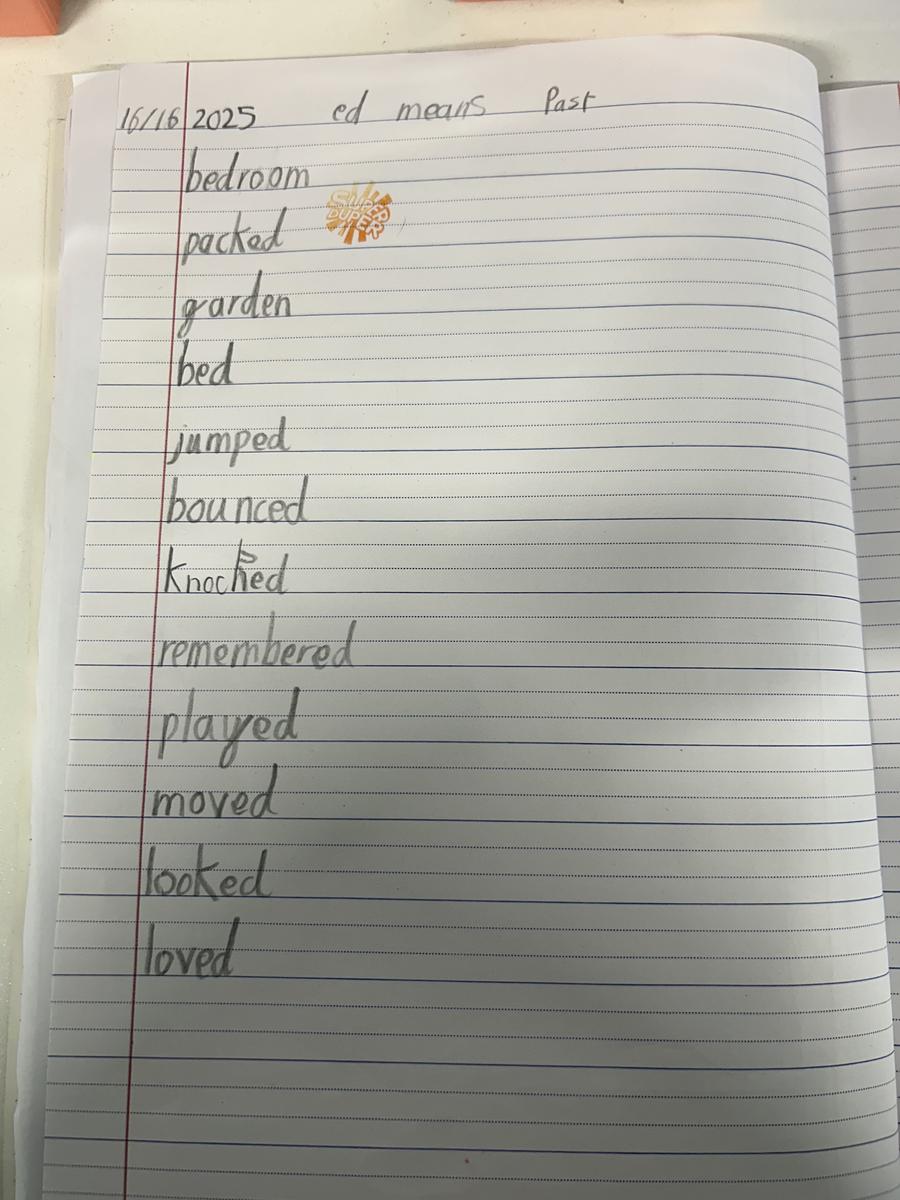 16/16/2025 ed means Past
bedroom
SUPER DUPER
packed
garden
bed
jumped
bounced
knocked
remembered
played
moved
looked
loved